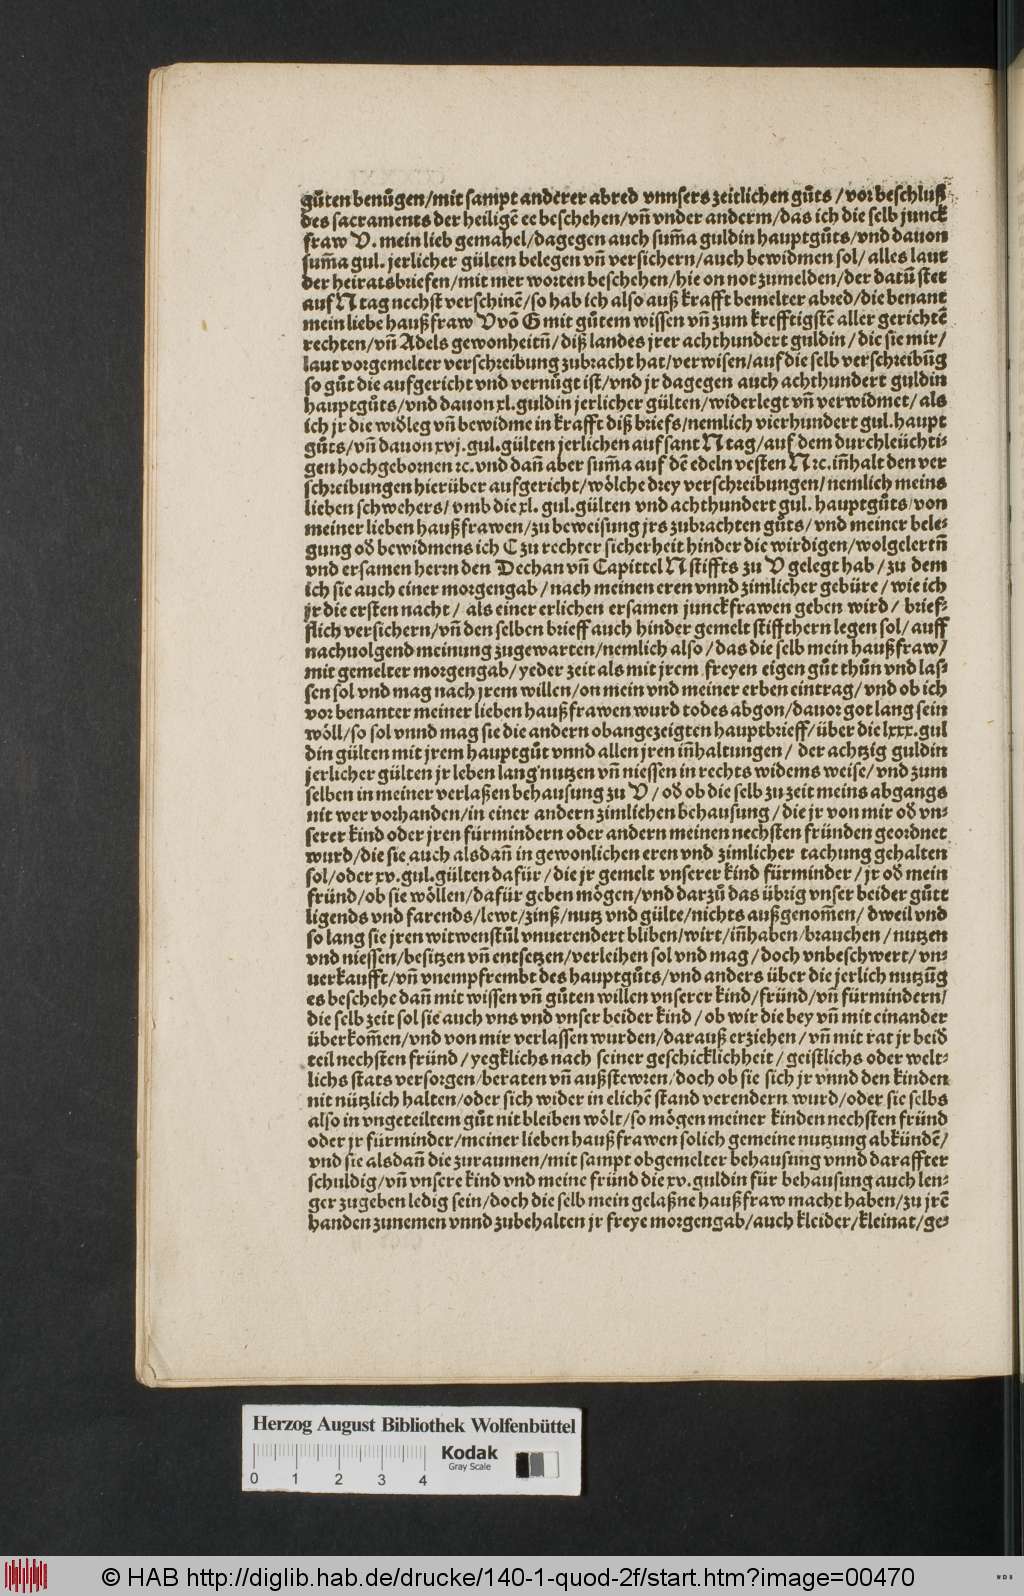 gůten benůgen/mit sampt anderer abred vnnsers zeitlichen gůts /vor beschluß
des sacraments der heiligē ee beschehen/vn̄ vnder anderm/das ich die selb junck
fraw V. mein lieb gemahel/dagegen auch sum̄a guldin hauptgůts/vnd dauon
sum̄a gul. jerlicher gülten belegen vn̄ versichern/auch bewidmen sol/alles laut
der heiratsbriefen/mit mer worten beschehen/hie on not zumelden/der datū stet
auf N tag nechst verschinē/so hab ich also auß krafft bemelter abred/die benant
mein liebe haußfraw V vō G mit gůtem wissen vn̄ zum krefftigstē aller gerichtē
rechten/vn̄ Adels gewonheitn̄/diß landes jrer achthundert guldin/die sie mir/
laut vorgemelter verschreibung zubracht hat/verwisen/auf die selb verschreibūg
so gůt die aufgericht vnd vernůgt ist/vnd jr dagegen auch achthundert guldin
hauptgůts/vnd dauon xl.guldin jerlicher gülten/widerlegt vn̄ verwidmet/als
ich jr die widleg vn̄ bewidme in krafft diß briefs/nemlich vierhundert gul.haupt
gůts/vn̄ dauon xvj.gul.gülten jerlichen auf sant N tag/auf dem durchleüchti-
gen hochgebornen ꝛc.vnd dan̄ aber sum̄a auf dē edeln vesten N ꝛc.in̄halt den ver
schreibungen hierüber aufgericht/wölche drey verschreibungen/nemlich meins
lieben schwehers/vmb die xl. gul.gülten vnd achthundert gul. hauptgůts/von
meiner lieben haußfrawen/zu beweisung jrs zubrachten gůts/vnd meiner bele-
gung od bewidmens ich C zu rechter sicherheit hinder die wirdigen/wolgelertn̄
vnd ersamen herrn den Dechan vn̄ Capittel N stiffts zu V gelegt hab/zu dem
ich sie auch einer morgengab/nach meinen eren vnnd zimlicher gebüre/wie ich
jr die ersten nacht/ als einer erlichen ersamen junckfrawen geben wird/ brief-
flich versichern/vn̄ den selben brieff auch hinder gemelt stiffthern legen sol/auff
nachuolgend meinung zugewarten/nemlich also/das die selb mein haußfraw/
mit gemelter morgengab/yeder zeit als mit jrem freyen eigen gůt thůn vnd las-
sen sol vnd mag nach jrem willen/on mein vnd meiner erben eintrag/vnd ob ich
vor benanter meiner lieben haußfrawen wurd todes abgon/dauor got lang sein
wöll/so sol vnnd mag sie die andern obangezeigten hauptbrieff/über die lxxx.gul
din gülten mit jrem hauptgůt vnnd allen jren in̄haltungen/ der achtzig guldin
jerlicher gülten jr leben lang nutzen vn̄ niessen in rechts widems weise/vnd zum
selben in meiner verlaßen behausung zu V/od ob die selb zu zeit meins abgangs
nit wer vorhanden/in einer andern zimlichen behausung/die jr von mir od vn-
serer kind oder jren fürmindern oder andern meinen nechsten fründen geordnet
wurd/die sie auch alsdan̄ in gewonlichen eren vnd zimlicher tachung gehalten
sol/oder xv.gul.gülten dafür/die jr gemelt vnserer kind fürminder/jr od mein
fründ/ob sie wöllen/dafür geben mögen/vnd darzů das übrig vnser beider gůtt
ligends vnd farends/lewt/zinß/nutz vnd gülte/nichts außgenom̄en/ dweil vnd
so lang sie jren witwenstůl vnuerendert bliben/wirt/in̄haben/brauchen/nutzen
vnd niessen/besitzen vn̄ entsetzen/verleihen sol vnd mag/doch vnbeschwert/vn-
uerkaufft/vn̄ vnempfrembt des hauptgůts/vnd anders über die jerlich nutzūg
es beschehe dan̄ mit wissen vn̄ gůten willen vnserer kind/fründ/vn̄ fürmindern/
die selb zeit sol sie auch vns vnd vnser beider kind/ob wir die bey vn̄ mit einander
überkom̄en/vnd von mir verlassen wurden/darauß erziehen/vn̄ mit rat jr beid
teil nechsten fründ/yegklichs nach seiner geschicklichheit/geistlichs oder welt-
lichs stats versorgen/beraten vn̄ außstewren/doch ob sie sich jr vnnd den kinden
nit nützlich halten/oder sich wider in elichē stand verendern wurd/oder sie selbs
also in vngeteiltem gůt nit bleiben wölt/so mögen meiner kinden nechsten fründ
oder jr fürminder/meiner lieben haußfrawen solich gemeine nutzung abkündē/
vnd sie alsdan̄ die zuraumen/mit sampt obgemelter behausung vnnd daraffter
schuldig/vn̄ vnsere kind vnd meine fründ die xv.guldin für behausung auch len-
ger zugeben ledig sein/doch die selb mein gelaßne haußfraw macht haben/zu jrē
handen zunemen vnnd zubehalten jr freye morgengab/auch kleider/kleinat/ge-
Herzog August Bibliothek Wolfenbüttel
Kodak
Gray Scale
0 1 2 3 4
© HAB http://diglib.hab.de/drucke/140-1-quod-2f/start.htm?image=00470